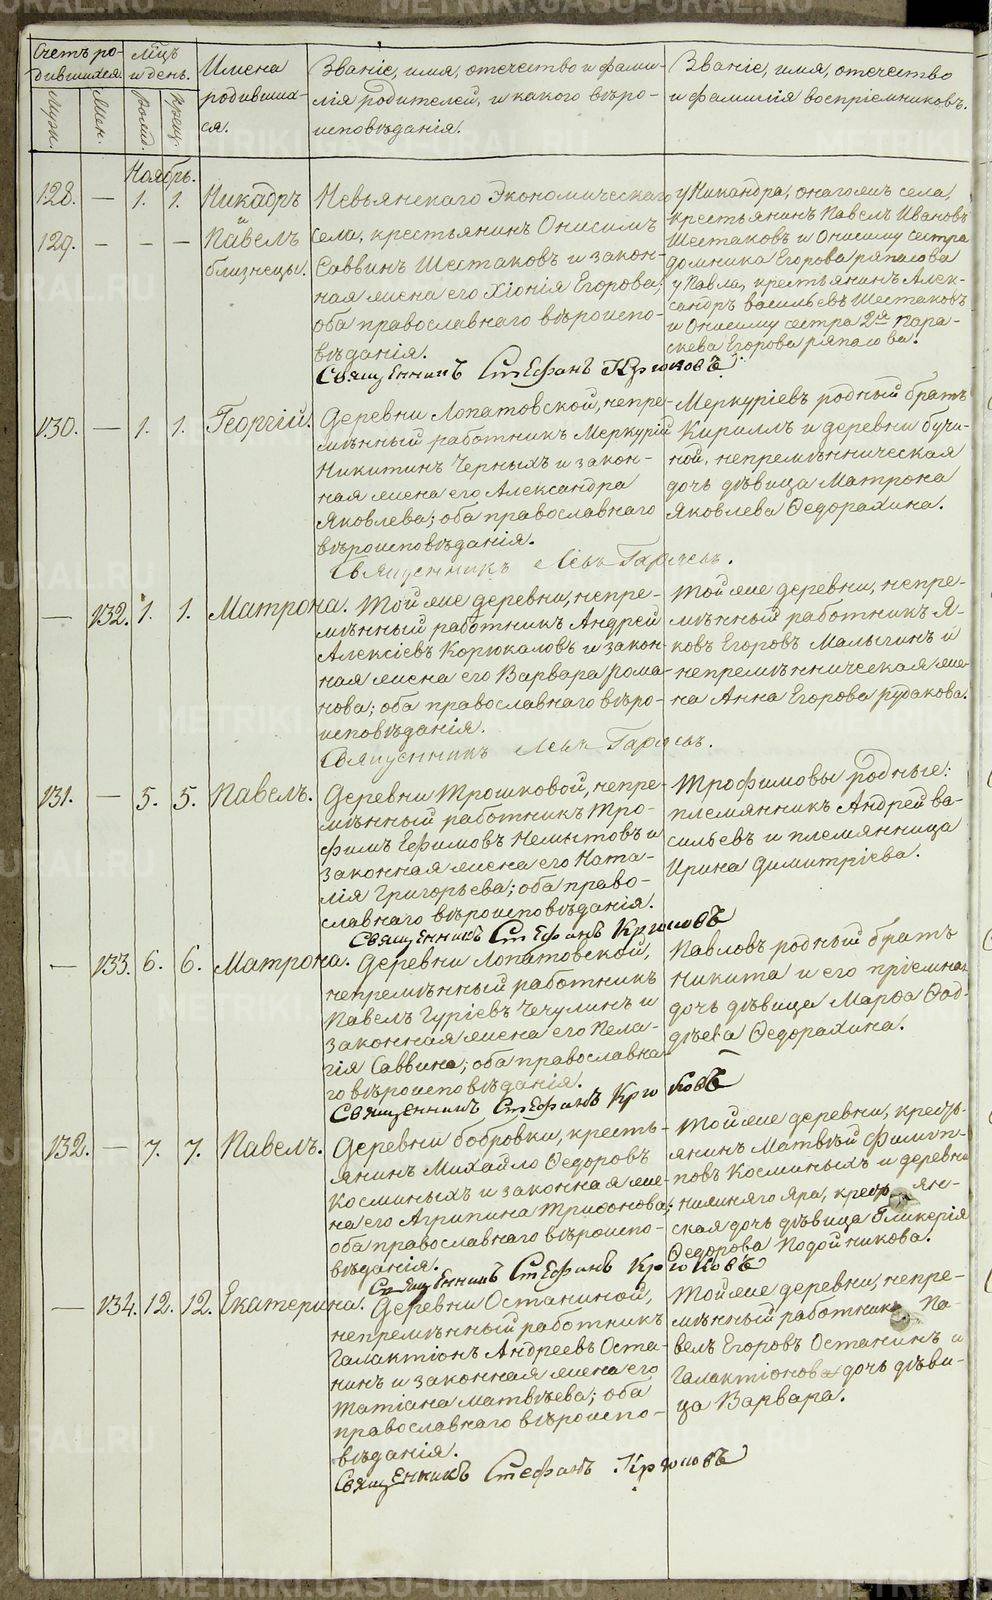 Счетъ ро-
дившихся.
Муж.
Жен.
Мѣсц
и день.
Рожд.
Крещ.
Имена
родивших-
ся.
Званіе, имя, отечество и фами-
лія родителей, и какого вѣро-
исповѣданія.
Званіе, имя, отечество
и фамилія воспріемниковъ.
Ноябрь.
128. — 1. 1. Никадръ
и
129. — — — Павелъ
близнецы.
Невьянскаго Экономическаго
села, крестьянинъ Онисимъ
Саввинъ Шестаковъ и закон-
ная жена его Хіонія Егорова;
оба православнаго вѣроиспо-
вѣданія.
Священникъ Стефанъ Крюковъ
у Никандра, онагожъ села,
крестьянинъ Павелъ Ивановъ
Шестаковъ и Онисиму сестра
домника Егорова ряпасова
у Павла, крестьянинъ Алек-
сандръ васильевъ Шестаковъ
и Онисиму сестра 2я Пара-
скева Егорова ряпасова.
130. — 1. 1. Георгій.
Деревни Лопатовской, непре-
мѣнный работникъ Меркурій
Никитинъ Черныхъ и закон-
ная жена его Александра
Яковлева; оба православнаго
вѣроисповѣданія.
Священникъ Левъ Гарясъ.
Меркуріевъ родный братъ
Кириллъ и деревни бучи-
ной, непремѣнническая
дочь дѣвица Матрона
Яковлева Ѳедорахина.
— 132. 1. 1. Матрона.
Тойже деревни, непре-
мѣнный работникъ Андрей
Алексіевъ Корюкаловъ и закон-
ная жена его Варвара рома-
нова; оба православнаго вѣро-
исповѣданія.
Священникъ Левъ Гарясъ.
Тойже деревни, непре-
мѣнный работникъ Я-
ковъ Егоровъ Малыгинъ и
непремѣнническая же-
на Анна Егорова рудакова.
131. — 5. 5. Павелъ.
Деревни Трошковой, непре-
мѣнный работникъ Тро-
фимъ Ефимовъ Немытовъ и
законная жена его Ната-
лія Григорьева; оба право-
славнаго вѣроисповѣданія.
Священникъ Стефанъ Крюковъ
Трофимовы родные:
племянникъ Андрей ва-
сильевъ и племянница
Ирина Димитріева.
— 133. 6. 6. Матрона.
Деревни Лопатовской,
непремѣнный работникъ
Павелъ Гуріевъ Чечулинъ и
законная жена его Пела-
гія Саввина; оба православна-
го вѣроисповѣданія.
Священникъ Стефанъ Крюковъ
Павловъ родный братъ
Никита и его пріемная
дочь дѣвица Марѳа Ѳад-
дѣева Ѳедорахина.
132. — 7. 7. Павелъ.
Деревни бобровки, кресть-
янинъ Михайло Ѳедоровъ
Косминыхъ и законная же-
на его Агрипина Трифонова;
оба православнаго вѣроиспо-
вѣданія.
Священникъ Стефанъ Крюковъ
Тойже деревни, кресть-
янинъ Матвѣй Филип-
повъ Косминыхъ и деревни
нижняго Яра, крестьян-
ская дочь дѣвица Гликерія
Ѳедорова Подойникова.
— 134. 12. 12. Екатерина.
Деревни Останиной,
непремѣнный работникъ
Галактіонъ Андреевъ Оста-
нинъ и законная жена его
Татіана Матвѣева; оба
православнаго вѣроиспо-
вѣданія.
Священникъ Стефанъ Крюковъ
Тойже деревни, непре-
мѣнный работникъ Па-
велъ Егоровъ Останинъ и
Галактіонова дочь дѣви-
ца Варвара.